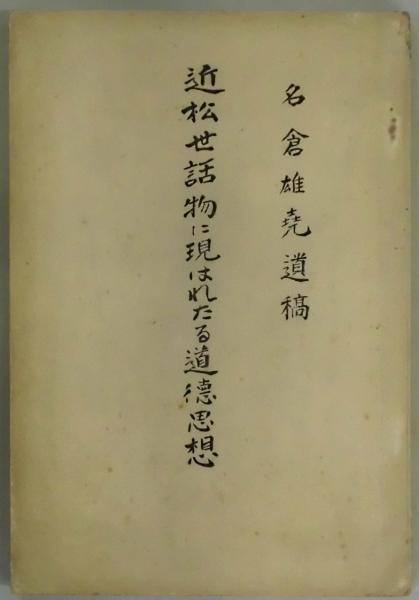 名倉雄堯遺稿
近松世話物に現はれたる道徳思想